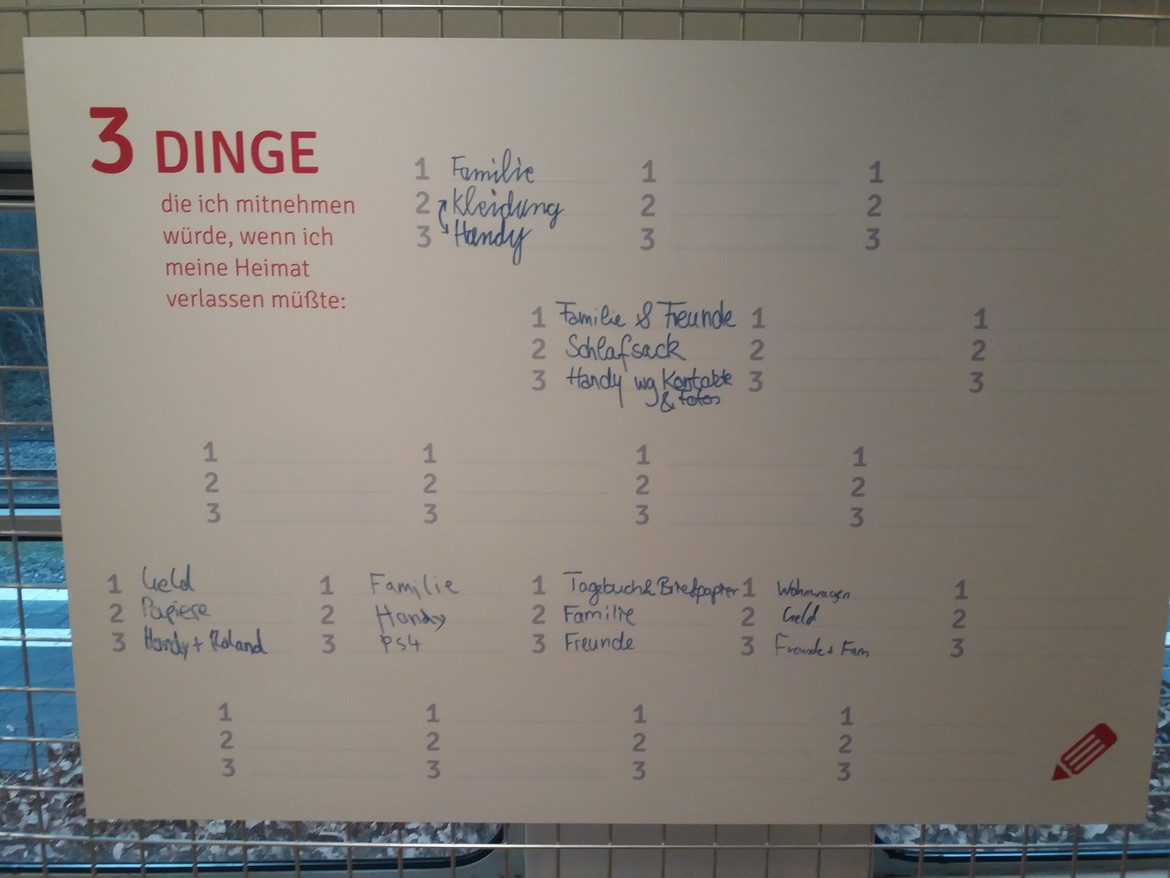 3 DINGE
die ich mitnehmen
würde, wenn ich
meine Heimat
verlassen müßte:
1 Familie
2 Kleidung
3 Handy
1
2
3
1
2
3
1 Familie & Freunde
2 Schlafsack
3 Handy wg Kontakte
& Fotos
1
2
3
1
2
3
1
2
3
1
2
3
1
2
3
1
2
3
1 Geld
2 Papiere
3 Handy + Roland
1 Familie
2 Handy
3 PS4
1 Tagebuch & Briefpapier
2 Familie
3 Freunde
1 Wohnwagen
2 Geld
3 Freunde + Fam
1
2
3
1
2
3
1
2
3
1
2
3
1
2
3